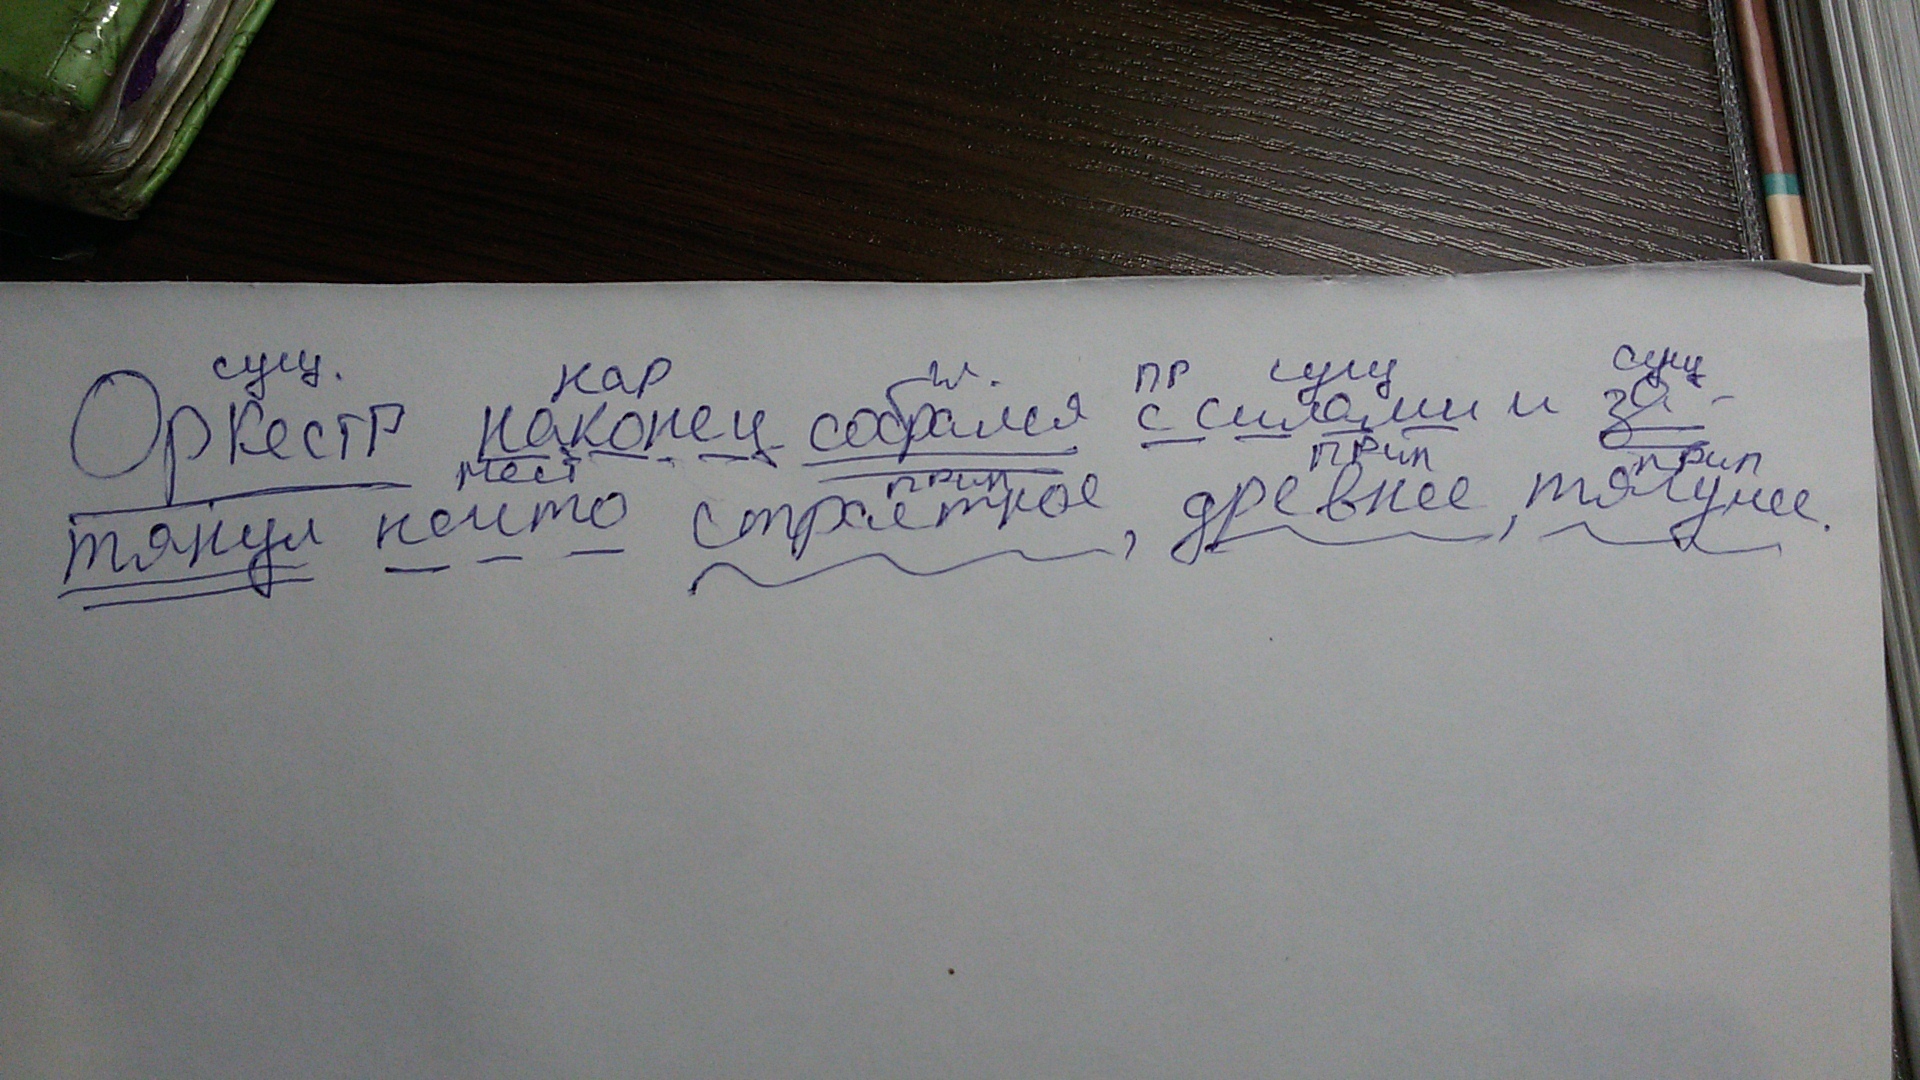 сущ. нар гл. пр сущ сущ
Оркестр наконец собрался с силами и за-
мест прил прил прил
тянул нечто страстное, древнее, тягучее.